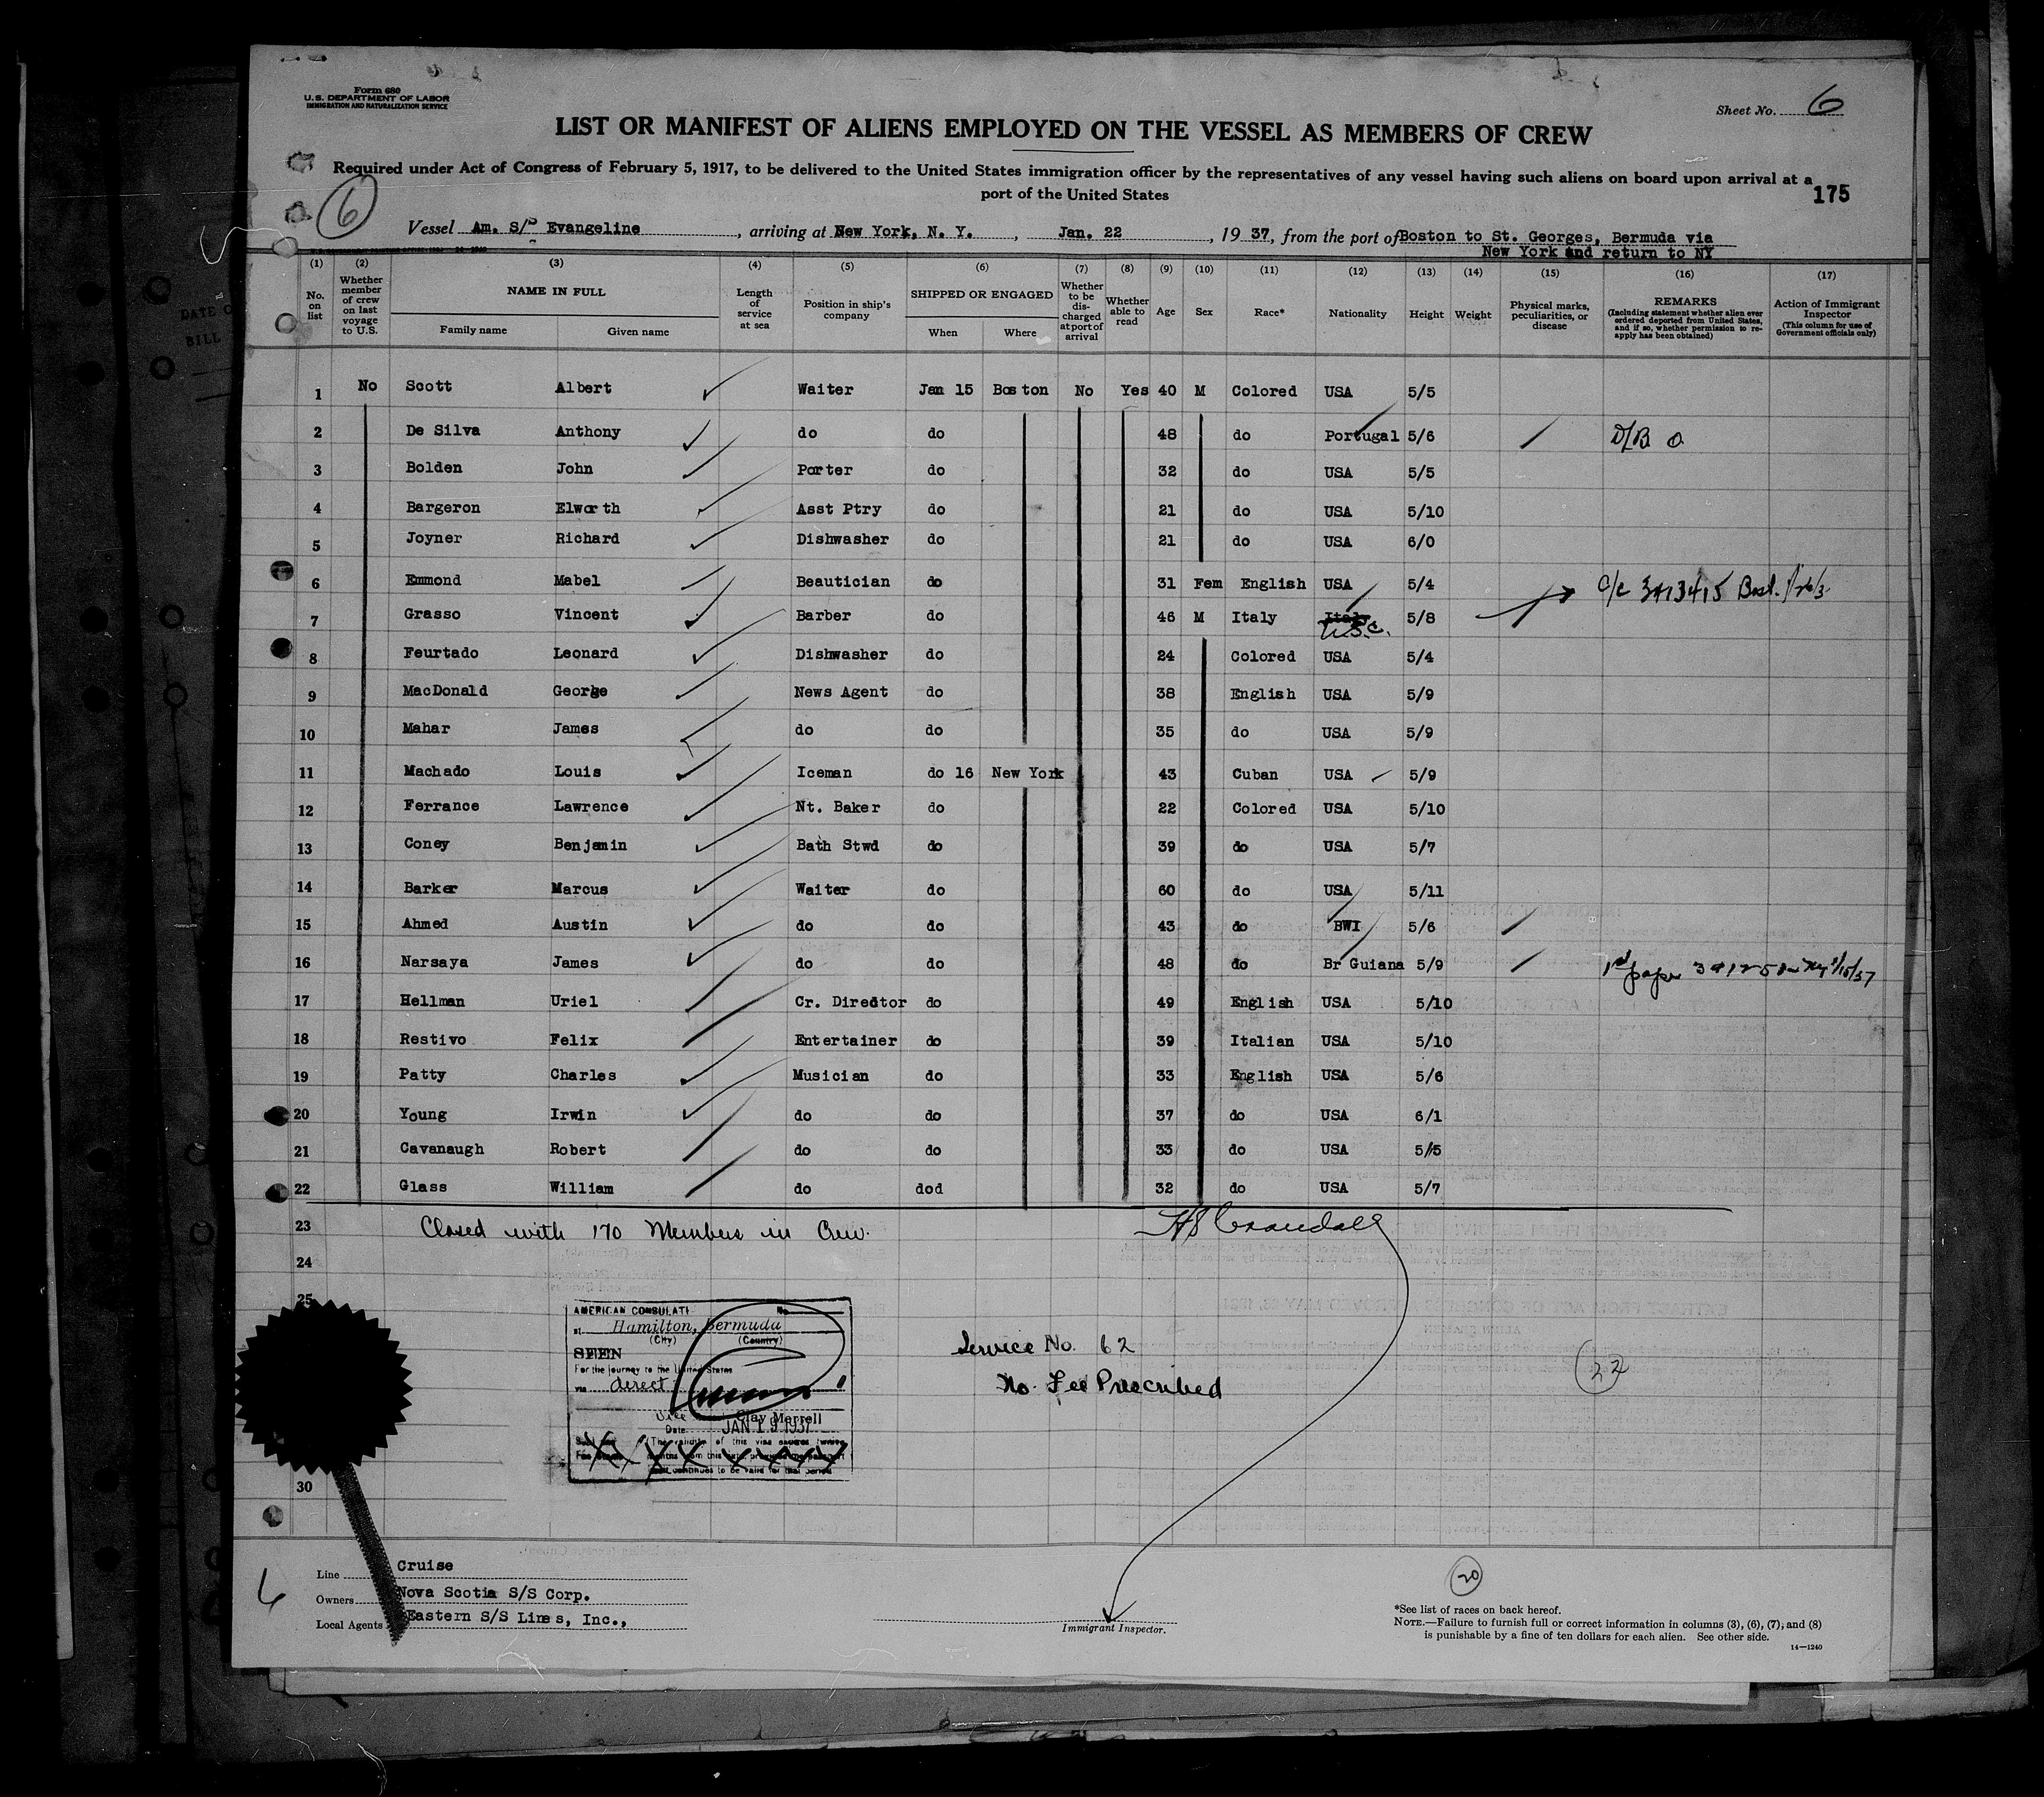 Form 680
U.S. DEPARTMENT OF LABOR
IMMIGRATION AND NATURALIZATION SERVICE
Sheet No. 6
LIST OR MANIFEST OF ALIENS EMPLOYED ON THE VESSEL AS MEMBERS OF CREW
Required under Act of Congress of February 5, 1917, to be delivered to the United States immigration officer by the representatives of any vessel having such aliens on board upon arrival at a
port of the United States
175
6
Vessel Am. S/S Evangeline, arriving at New York, N. Y., Jan. 22, 1937, from the port of Boston to St. Georges, Bermuda via
New York and return to NY
(1) (2) (3) (4) (5) (6) (7) (8) (9) (10) (11) (12) (13) (14) (15) (16) (17)
No. on list
Whether member of crew on last voyage to U.S.
NAME IN FULL
Family name Given name
Length of service at sea
Position in ship's company
SHIPPED OR ENGAGED
When Where
Whether to be discharged at port of arrival
Whether able to read
Age
Sex
Race*
Nationality
Height
Weight
Physical marks, peculiarities, or disease
REMARKS
(Including statement whether alien ever ordered deported from United States, and if so, whether permission to reapply has been obtained)
Action of Immigrant Inspector
(This column for use of Government officials only)
1 No Scott Albert Waiter Jan 15 Boston No Yes 40 M Colored USA 5/5
2 De Silva Anthony do do 48 do Portugal 5/6 D/B O
3 Bolden John Porter do 32 do USA 5/5
4 Bargeron Elworth Asst Ptry do 21 do USA 5/10
5 Joyner Richard Dishwasher do 21 do USA 6/0
6 Emmond Mabel Beautician do 31 Fem English USA 5/4
7 Grasso Vincent Barber do 46 M Italy Italy U.S.C. 5/8 C/C 3413415 Bost.
8 Feurtado Leonard Dishwasher do 24 Colored USA 5/4
9 MacDonald George News Agent do 38 English USA 5/9
10 Mahar James do do 35 do USA 5/9
11 Machado Louis Iceman do 16 New York 43 Cuban USA 5/9
12 Ferrance Lawrence Nt. Baker do 22 Colored USA 5/10
13 Coney Benjamin Bath Stwd do 39 do USA 5/7
14 Barker Marcus Waiter do 60 do USA 5/11
15 Ahmed Austin do do 43 do BWI 5/6
16 Narsaya James do do 48 do Br Guiana 5/9 1st paper
17 Hellman Uriel Cr. Director do 49 English USA 5/10
18 Restivo Felix Entertainer do 39 Italian USA 5/10
19 Patty Charles Musician do 33 English USA 5/6
20 Young Irwin do do 37 do USA 6/1
21 Cavanaugh Robert do do 33 do USA 5/5
22 Glass William do dod 32 do USA 5/7
23 Closed with 170 Members in Crew. HS Crandall
24
25
AMERICAN CONSULATE No.
at Hamilton, Bermuda
(City) (Country)
SEEN
For the journey to the United States
via direct
Vice Clay Merrell
Date JAN 19 1937
Service No. 62
No Fee Prescribed
22
30
Line Cruise
Owners Nova Scotia S/S Corp.
Local Agents Eastern S/S Lines, Inc.,
6
20
Immigrant Inspector.
*See list of races on back hereof.
NOTE.—Failure to furnish full or correct information in columns (3), (6), (7), and (8)
is punishable by a fine of ten dollars for each alien. See other side.
14—1240